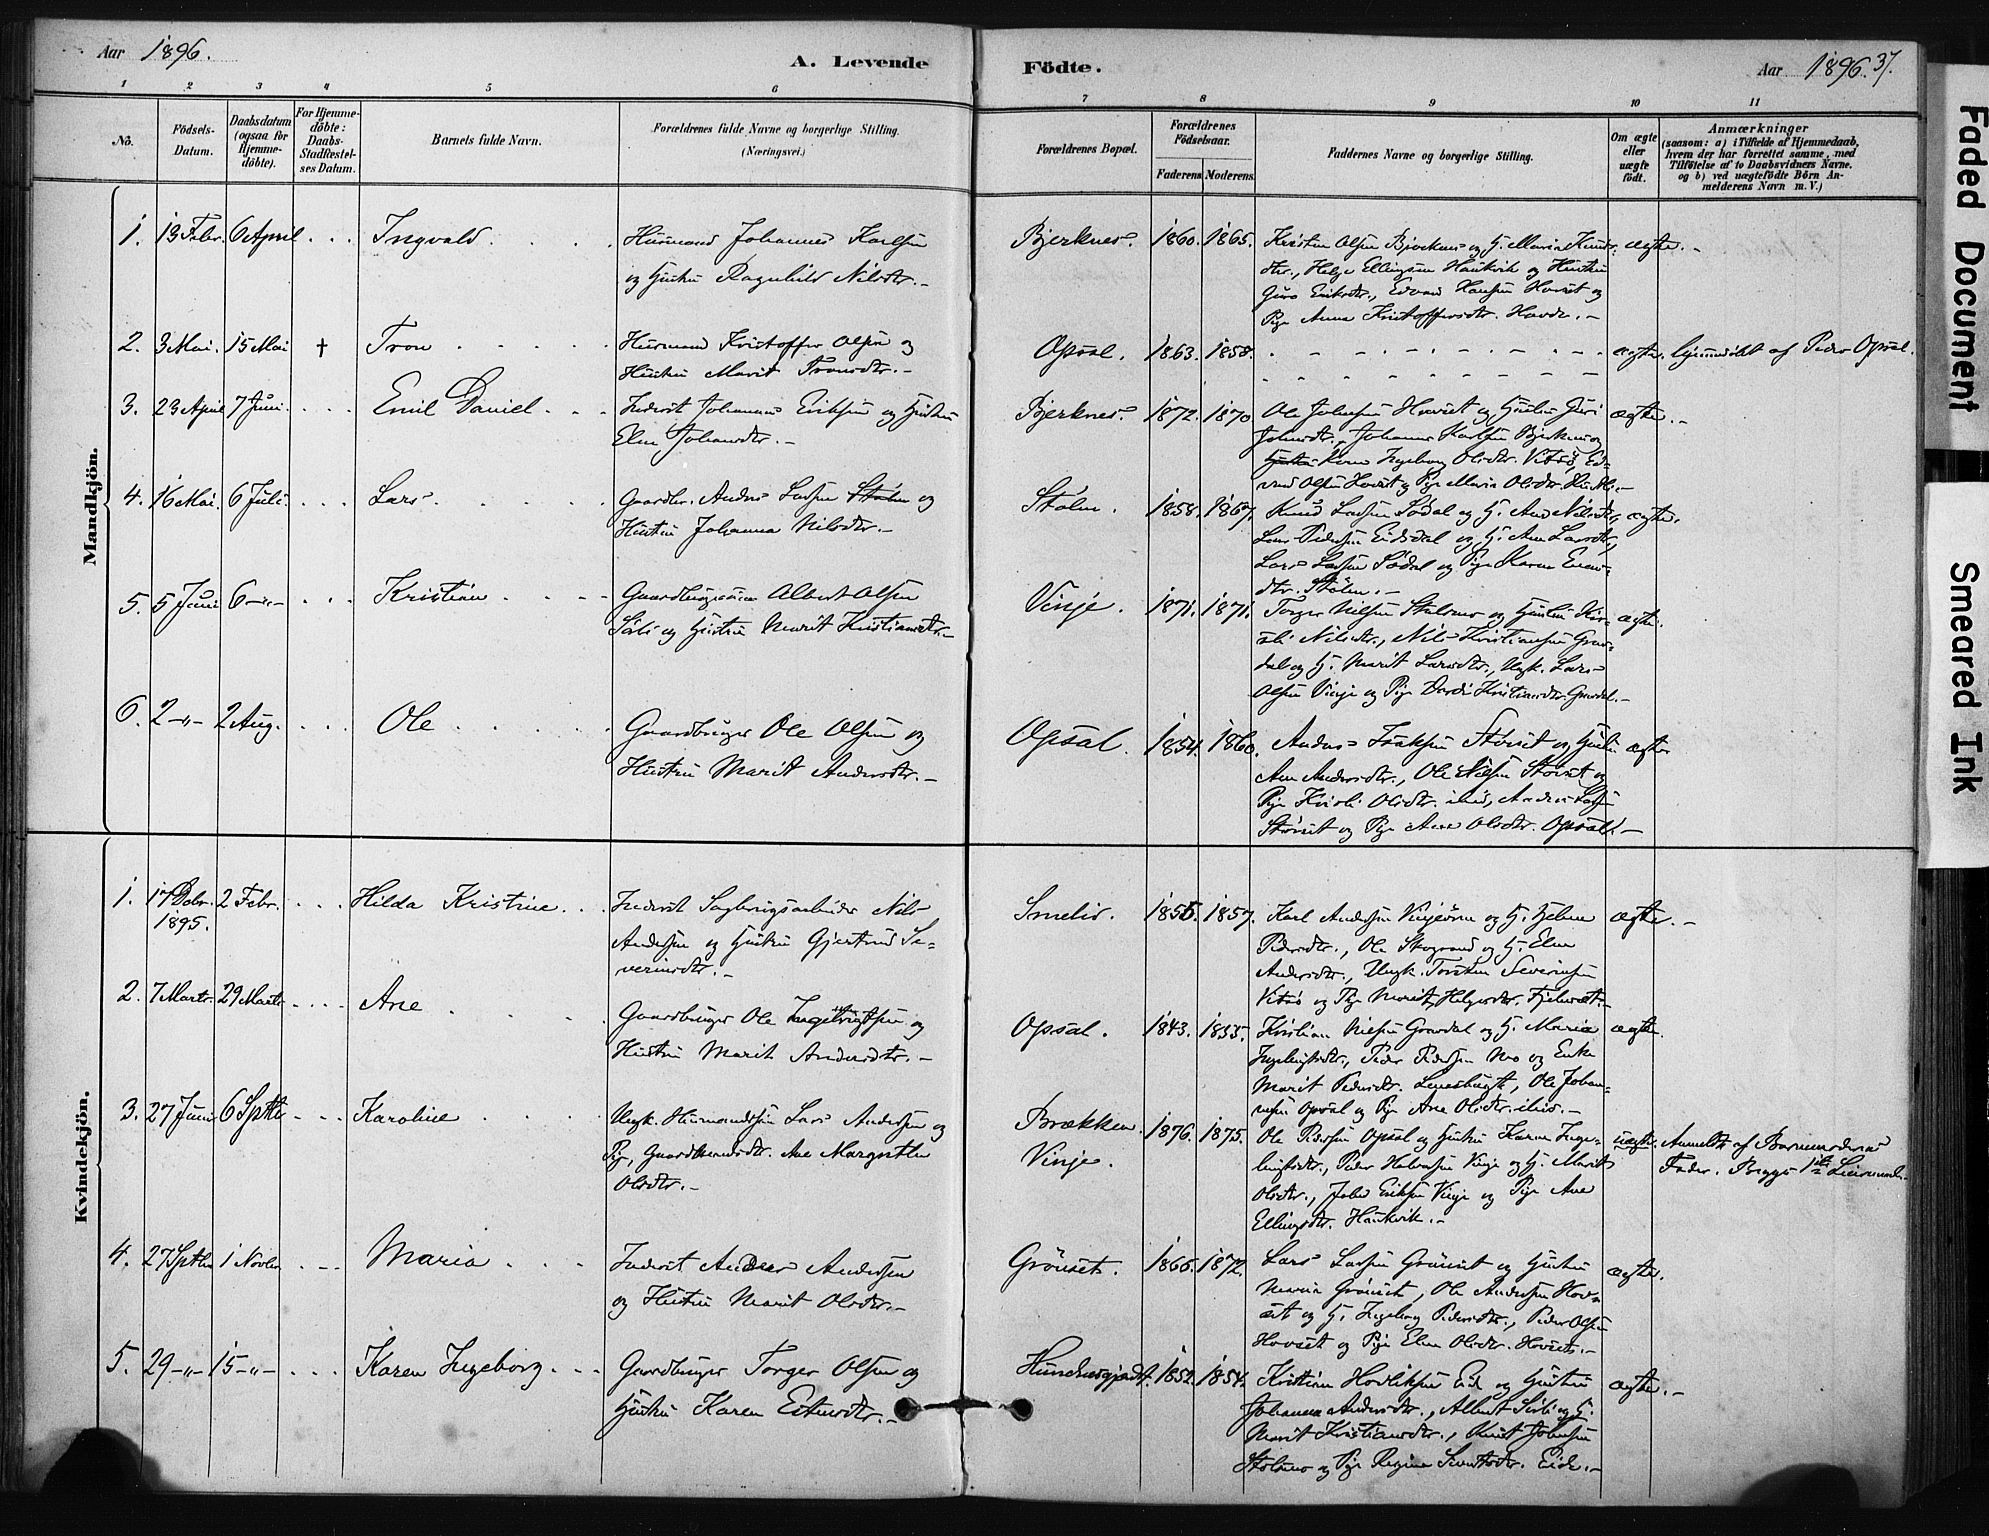 Aar 1896.
A. Levende Födte.
Aar 1896. 37.
1 2 3 4 5 6 7 8 9 10 11
No.
Födsels-Datum.
Daabsdatum (ogsaa for Hjemme-döbte).
For Hjemme-döbte: Daabs-Stadfæstel-ses Datum.
Barnets fulde Navn.
Forældrenes fulde Navne og borgerlige Stilling. (Næringsvei.)
Forældrenes Bopæl.
Forældrenes Födselsaar.
Faderens Moderens
Faddernes Navne og borgerlige Stilling.
Om ægte eller uægte födt.
Anmærkninger
(saasom: a) i Tilfælde af Hjemmedaab,
hvem der har forrettet samme, med
Tilföielse af to Daabsvidners Navne.
og b) ved uægtefödte Börn An-
melderens Navn m. V.)
Mandkjön.
1. 13 Febr. 6 April Ingvald. Husmand Johannes Karlsen
og Hustru Ragnhild Nilsdtr.-
Bjerknes. 1860. 1865. Kristen Olsen og H. Maria Knuds- ægte.-
dtr., Helge Ellingsen Haukvik og Hustru
Guro Eriksdtr., Edvard Hansen Hovset og
Pige Anna Kristoffersdtr. Havde.-
2. 3 Mai. 15 Mai † Tron Husmand Kristoffer Olsen og
Hustru Marit Tronsdtr.-
Opsal. 1863. 1858. ægte. hjemmedöbt af Peder Opsal.
3. 23 April 7 Juni. Emil Daniel Inderst Johannes Eriksen og Hustru
Elen Johansdtr.-
Bjerknes. 1872. 1870 Ole Johnsen Hovset og Hustru Guri ægte.-
Johnsdtr., Johannes Karlsen Bjerknes og
Kone Ingeborg Olsdtr. Vitsö, Ed-
vard Olsen Hovset og Pige Maria Olsdtr.
4. 16 Mai. 6 Juli. Lars Gaardbr. Anders Larsen Stölen og
Hustru Johanna Nilsdtr.-
Stölen. 1858. 1867. Knud Larsen Södal og H. Ane Nilsdtr., ægte.
Lars Pedersen Eidsdal og H. Ane Larsdtr.,
Lars Larsen Södal og Pige Karen
dtr. Stölen.-
5. 5 Juni 6 -"- Kristian Albert Olsen
og Hustru Marit Kristiansdtr.-
Vinje. 1871. 1871. Torger Nilsen og Hustru ægte.
Nilsdtr., Nils Kristiansen Grav-
dal og H. Marit Larsdtr., Ungk. Lars
Olsen Vinje og Pige Dordi Kristiansdtr. Gravdal.-
6. 2 -"- 2 Aug. Ole Gaardbruger Ole Olsen og
Hustru Marit Andersdtr.-
Opsal. 1854. 1860. Anders Isaksen Stövset og Hustru ægte
Ane Andersdtr., Ole Nilsen Stövset og
Pige Olsdtr. ibid, Anders Larsen
Stövset og Pige Ane Olsdtr. Opsal.-
Kvindekjön.
1. 17 Debr. 1895. 2 Febr. Hilda Kristine Inderst Sagbrugsarbeider Nils
Andersen og Hustru Gjertrud Se-
verinsdtr.-
1855. 1857. Karl Andersen Vinjeören og H. ægte.-
Pedersdtr., Ole og H. Elen
Andersdtr., Ungk. Torsten Severinsen
Vitsö og Pige Marit Helgesdtr.
2. 7 Marts. 29 Marts Ane Gaardbruger Ole Ingebrigtsen og
Hustru Marit Andersdtr.-
Opsal. 1843. 1855. Kristian Nilsen Gravdal og H. Maria ægte.
Ingebrigtsdtr., Peder Pedersen Mo og Enke
Marit Pedersdtr. , Ole Johan-
nesen Opsal og Pige Ane Olsdtr. ibid.-
3. 27 Juni 6 Septbr Karoline Ungk. Husmandssön Lars Andersen og
Pige, Ane Margrethe
Olsdtr.-
Brækken. Vinje. 1876. 1875. Ole Pedersen Opsal og Hustru Karen Inge- uægte. Anmeldt af Barnemoderens
brigtsdtr., Peder Halvorsen Vinje og H. Marit Fader. Begges 1ste Leiermaal.-
Olsdtr., John Eriksen Vinje og Pige Ane
Ellingsdtr. Haukvik.-
4. 27 Septbr 1 Novbr Maria Inderst Anders Andersen
og Hustru Marit Olsdtr.-
Grönset. 1866. 1872. Lars Larsen Grönset og Hustru ægte.
Maria Grönset, Ole Andersen Hov-
set og H. Ingeborg Pedersdtr., Peder Olsen
Hovset og Pige Elen Olsdtr. Hovset.-
5. 29 -"- 15 -"- Karen Ingeborg Gaardbruger Torger Olsen og
Hustru Karen Estensdtr.-
1852. 1854. Kristian Eide og Hustru ægte.-
Johanna Andersdtr., Albert og H.
Marit Kristiansdtr., Knut Johnsen
og Pige Regine Eide.-
Faded Document
Smeared Ink